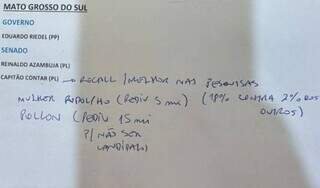 MATO GROSSO DO SUL
GOVERNO
EDUARDO RIEDEL (PP)
SENADO
REINALDO AZAMBUJA (PL)
CAPITÃO CONTAR (PL) → RECALL / MELHOR NAS PESQUISAS
MULHER RODOLFO (PEDIU 5 mi) (18% CONTRA 2% DOS OUTROS)
POLLON (PEDIU 15 mi
P/ NÃO SER
CANDIDATO)